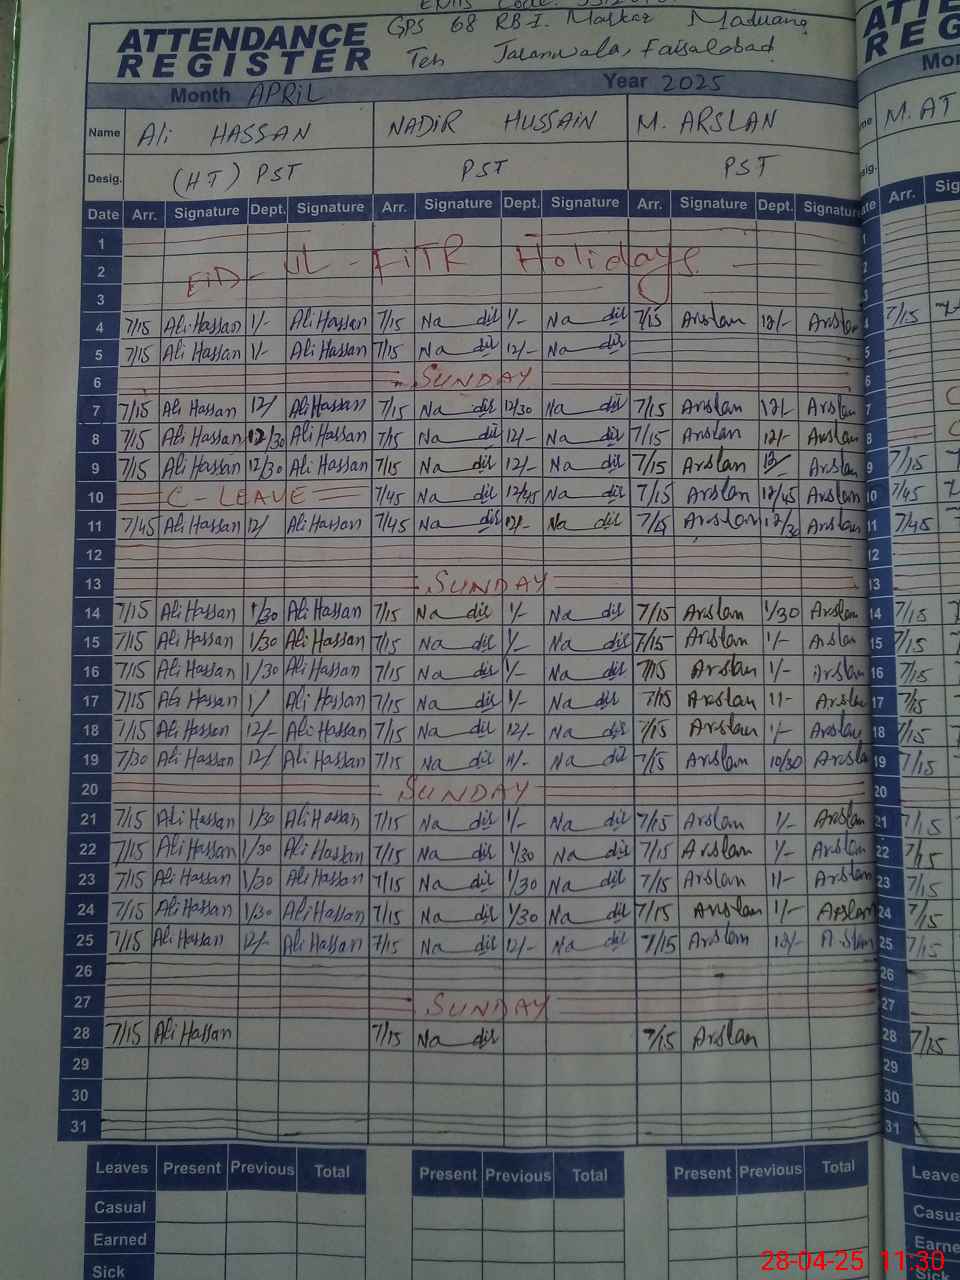 GPS 68 RB I. Markaz Maduana
ATTENDANCE REGISTER
Teh Jaranwala, Faisalabad
Month APRIL Year 2025
Name Ali HASSAN NADIR HUSSAIN M. ARSLAN M. AT
Desig. (HT) PST PST PST
Date Arr. Signature Dept. Signature Arr. Signature Dept. Signature Arr. Signature Dept. Signature Arr.
1
2 EID-UL-FITR Holidays
3
4 7/15 Ali Hassan 1/- Ali Hassan 7/15 Nadir 1/- Nadir 7/15 Arslan 12/- Arslan 7/15
5 7/15 Ali Hassan 1/- Ali Hassan 7/15 Nadir 12/- Nadir 5
6 SUNDAY 6
7 7/15 Ali Hassan 12/ Ali Hassan 7/15 Nadir 12/30 Nadir 7/15 Arslan 12/- Arslan 7
8 7/15 Ali Hassan 12/30 Ali Hassan 7/15 Nadir 12/- Nadir 7/15 Arslan 12/- Arslan 8
9 7/15 Ali Hassan 12/30 Ali Hassan 7/15 Nadir 12/- Nadir 7/15 Arslan Arslan 9 7/15
10 C-LEAVE 7/45 Nadir 12/45 Nadir 7/15 Arslan 12/45 Arslan 10 7/45
11 7/45 Ali Hassan 12/ Ali Hassan 7/45 Nadir 12/- Nadir 7/15 Arslan 12/30 Arslan 11 7/45
12 12
13 SUNDAY 13
14 7/15 Ali Hassan 1/30 Ali Hassan 7/15 Nadir 1/- Nadir 7/15 Arslan 1/30 Arslan 14 7/15
15 7/15 Ali Hassan 1/30 Ali Hassan 7/15 Nadir 1/- Nadir 7/15 Arslan 1/- Arslan 15 7/15
16 7/15 Ali Hassan 1/30 Ali Hassan 7/15 Nadir 1/- Nadir 7/15 Arslan 1/- Arslan 16 7/15
17 7/15 Ali Hassan 1/ Ali Hassan 7/15 Nadir 1/- Nadir 7/15 Arslan 1/- Arslan 17 7/15
18 7/15 Ali Hassan 12/- Ali Hassan 7/15 Nadir 12/- Nadir 7/15 Arslan 1/- Arslan 18 7/15
19 7/30 Ali Hassan 12/ Ali Hassan 7/15 Nadir 11/- Nadir 7/15 Arslan 10/30 Arslan 19 7/15
20 SUNDAY 20
21 7/15 Ali Hassan 1/30 Ali Hassan 7/15 Nadir 1/- Nadir 7/15 Arslan 1/- Arslan 21 7/15
22 7/15 Ali Hassan 1/30 Ali Hassan 7/15 Nadir 1/30 Nadir 7/15 Arslan 1/- Arslan 22 7/15
23 7/15 Ali Hassan 1/30 Ali Hassan 7/15 Nadir 1/30 Nadir 7/15 Arslan 1/- Arslan 23 7/15
24 7/15 Ali Hassan 1/30 Ali Hassan 7/15 Nadir 1/30 Nadir 7/15 Arslan 1/- Arslan 24 7/15
25 7/15 Ali Hassan 12/- Ali Hassan 7/15 Nadir 12/- Nadir 7/15 Arslan 12/- Arslan 25 7/15
26 26
27 SUNDAY 27
28 7/15 Ali Hassan 7/15 Nadir 7/15 Arslan 28 7/15
29 29
30 30
31 31
Leaves Present Previous Total Present Previous Total Present Previous Total Leave
Casual Casua
Earned Earne
Sick Sick
28-04-25 11:30